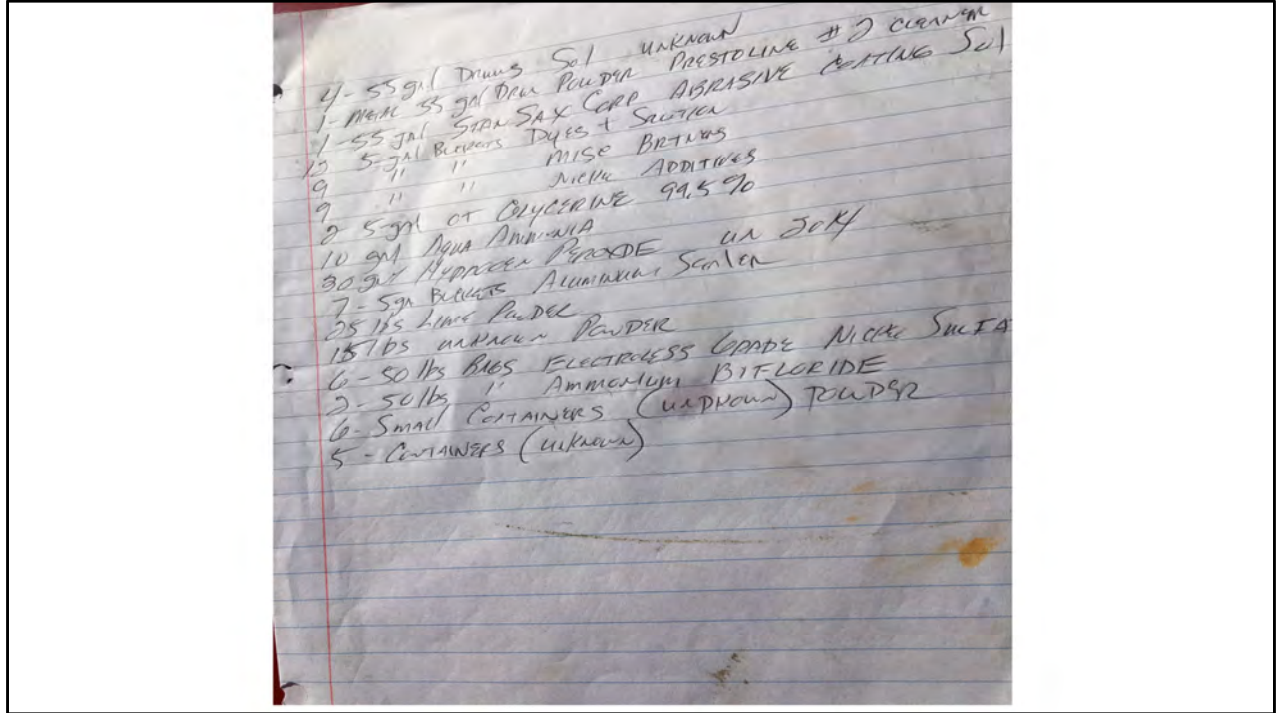 4 - 55 gal Drums Sol unknown
1 - Metal 55 gal Drum Powder Prestoline #2 Cleaner
1 - 55 gal Stan Sax Corp Abrasive Coating Sol
13 5-gal Buckets Dyes + Solution
9 " " Misc Brtners
9 " " Nickel Additives
2 5 gal of Glycerine 99.5%
10 gal Aqua Ammonia
30 gal Hydrogen Peroxide un 2014
7 - 5gal Buckets Aluminum Sealer
25 lbs Lime Powder
15 lbs unknown Powder
6 - 50 lbs Bags Electroless Grade Nickel Sulfa
2 - 50 lbs " Ammonium Bifloride
6 - Small Containers (unknown) Powder
5 - Containers (unknown)